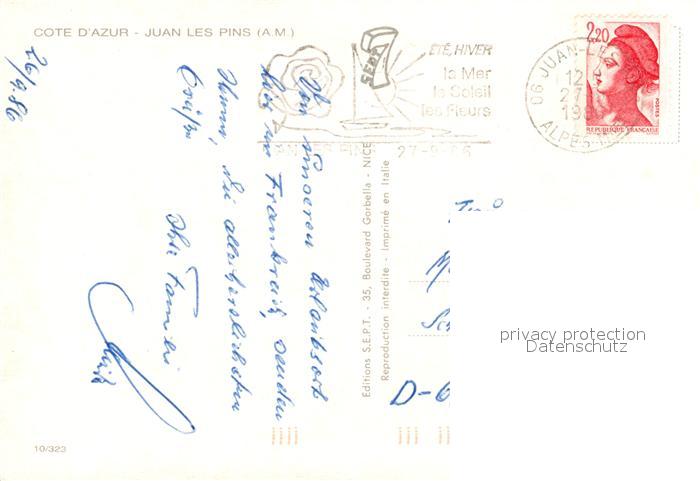 COTE D'AZUR - JUAN LES PINS (A.M.)
26/9.86
Von unserem Urlaubsort
hier in Frankreich, senden
Ihnen, die allerherzlichsten
Grüße
Ihre Familie
ÉTÉ, HIVER
la Mer
le Soleil
les Fleurs
SEPT
27-9-86
06 JUAN-LES
12
27
198
ALPES-M
2,20
POSTES
REPUBLIQUE FRANÇAISE
Editions S.E.P.T. - 35, Boulevard Gorbella - NICE
Reproduction interdite - Imprimé en Italie
D-6
privacy protection
Datenschutz
10/323